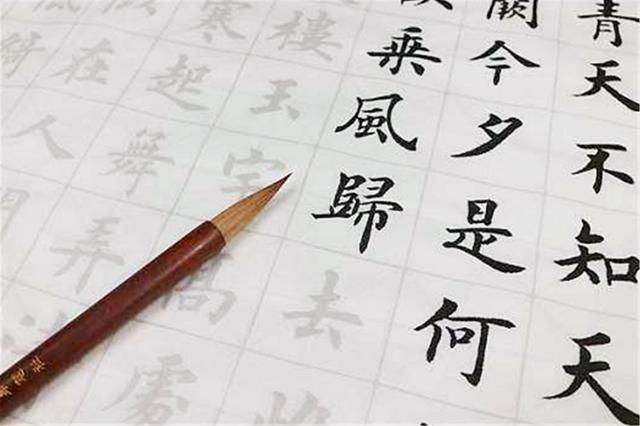 青天不知天
闕今夕是何
乘風歸去
樓玉宇高處
寒起舞弄
在人
綺